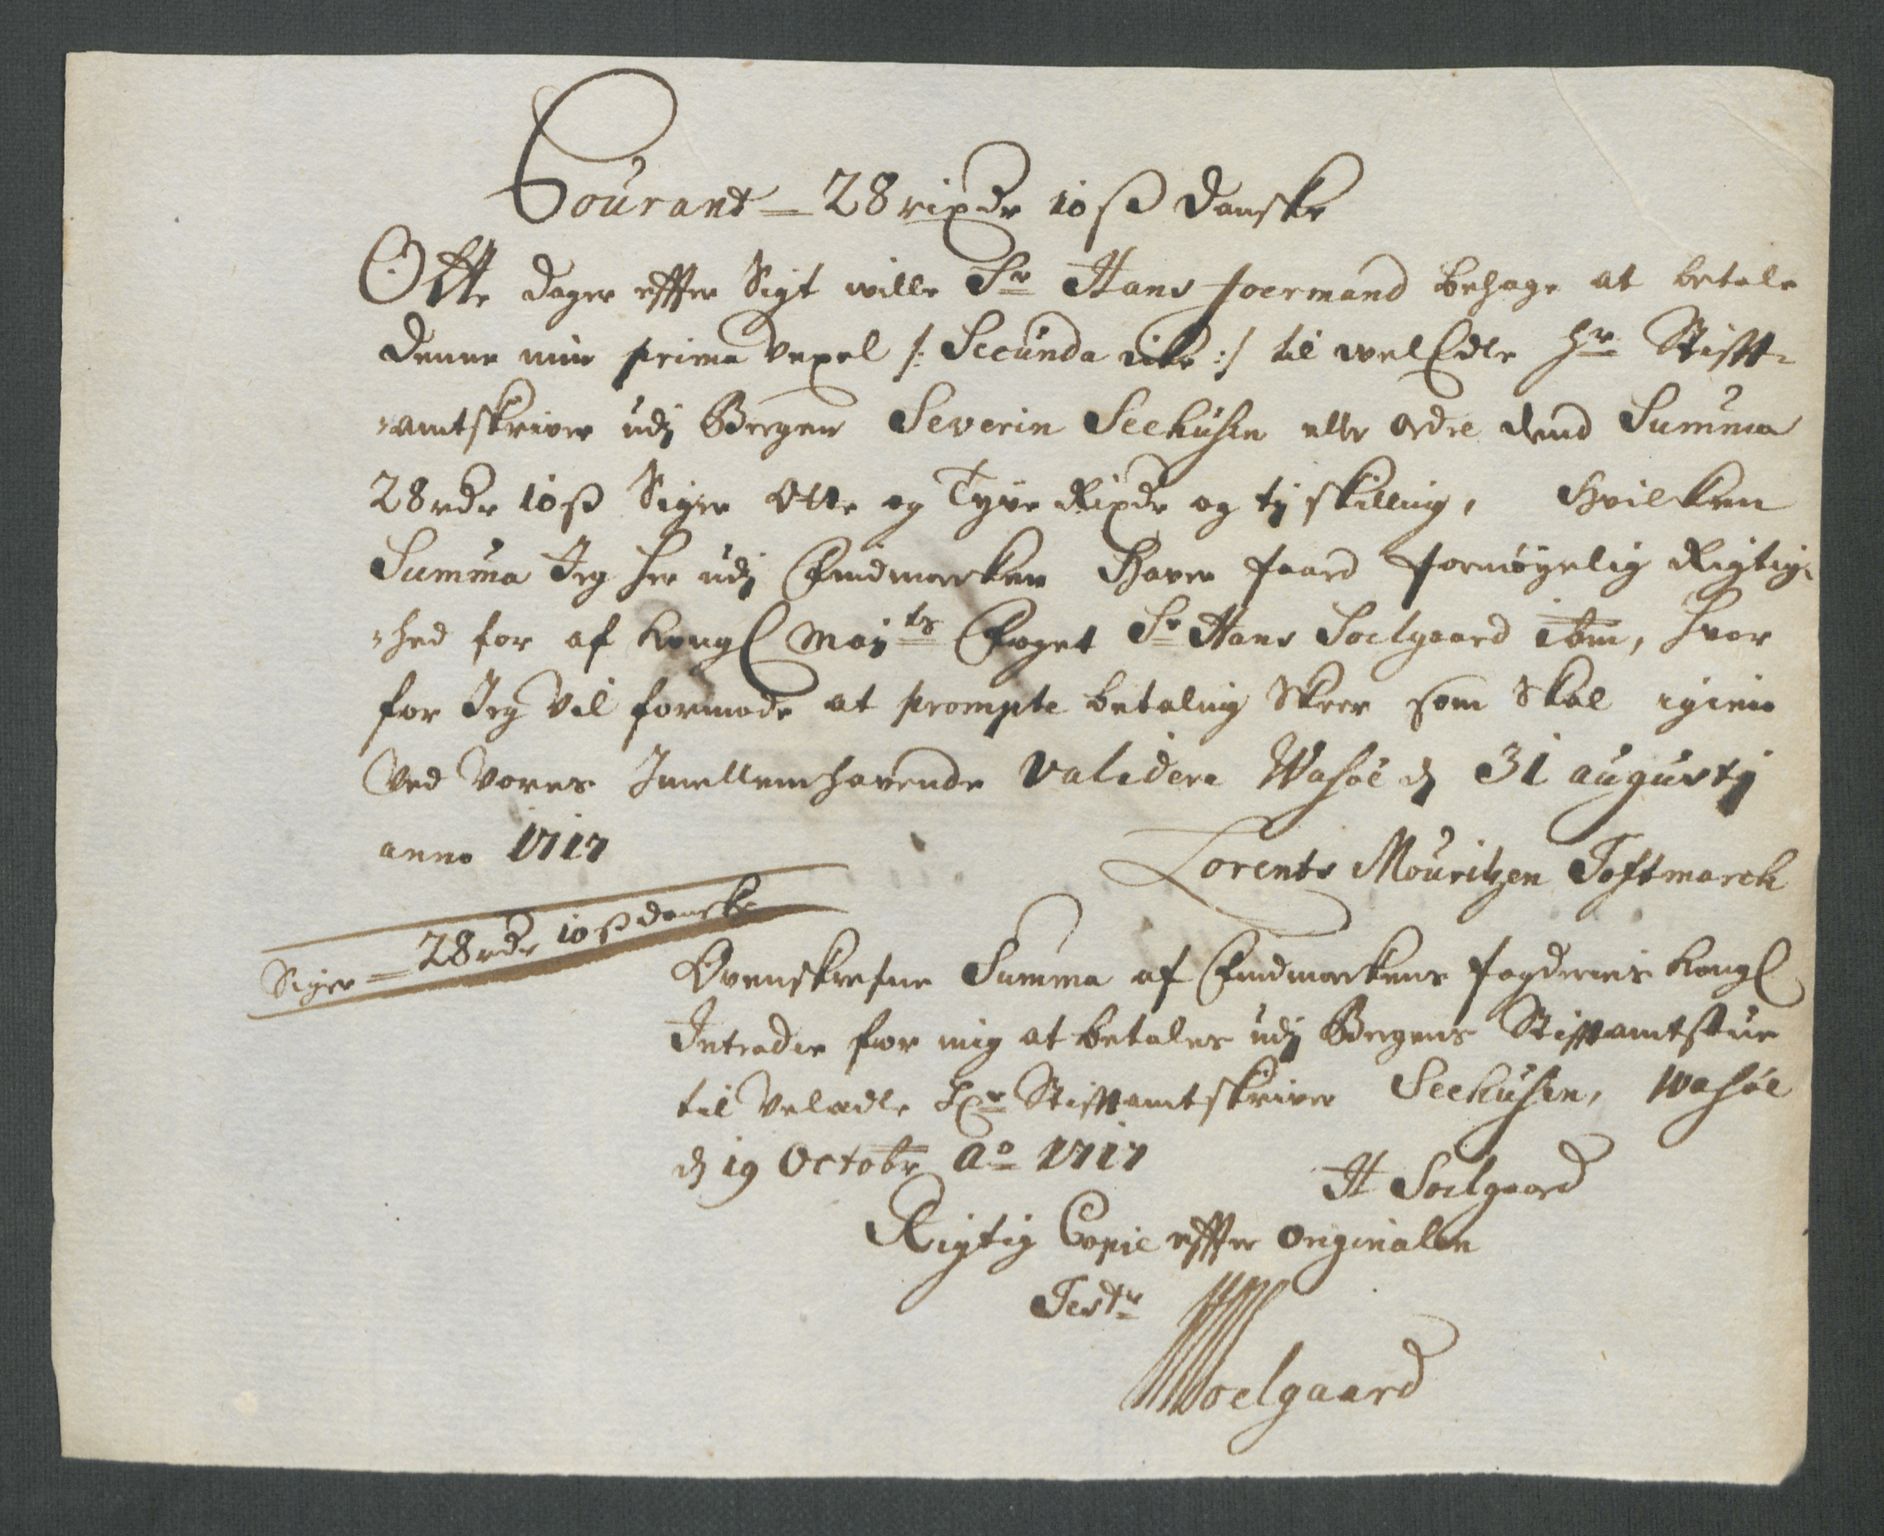 Courant = 28 rixdr 10 ß Danske
Otte dager effter Sigt wille Sr Hans Joermand behage at betale
denne min prima vexel /: Secunda icke :/ til welEdle Hr Stifft-
-amtskriver udj Bergen Severin Seehusen eller ordre dend Summa
28 rdr 10 ß Siger Otte og Tyve Rixdr og tj skilling, Hvilken
Summa Jeg her udj Findmarken Haver faard fornøyelig Rigtig-
-hed for af Kongl Mayts Foget Sr Hans Soelgaard ibm, hvor
for Jeg vil formode at prompte betaling Skeer som Skal igien
ved vores Imellemhavende validere Wasøe dj 31 augustj
anno 1717
Lorents Mouritzen Toftmarck
Siger = 28 rdr 10 ß danske
Ovenskrefne Summa af Findmarkens fogderies Kongl
Intrader for mig at betales udj Bergens Stifftamtstue
til Velædle Hr Stifftamtskriver Seehusen, Wasøe
dj 19 Octobr Ao 1717
H Soelgaard
Rigtig Copie effter originalen
Testr
Soelgaard